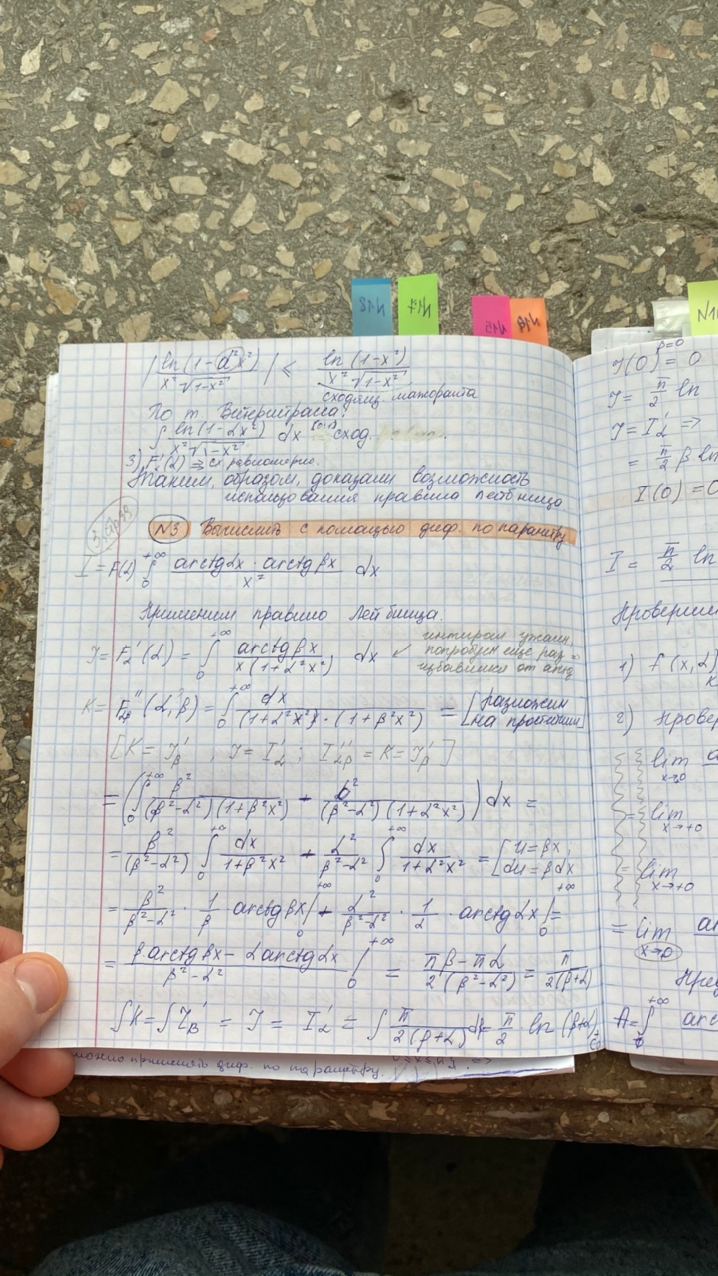 N18
N17
N15
N14
| ln(1-a²x²) / x²√(1-x²) | ≤ ln(1-x²) / x²√(1-x²)
сходящ. мажоранта
По т. Вейерштрасса:
∫ ln(1-αx²) / x²√(1-x²) dx сход.
3) F'α(α) ⇉ сх равномерно.
Таким, образом, доказали возможность
использования правила Лейбница
3 стр 99
N3 Вычислить с помощью диф. по параметру
I = F(α) ∫₀^{+∞} arctgαx · arctgβx / x² dx
Применим правило Лейбница.
J = F'α(α) = ∫₀^{+∞} arctgβx / x(1+α²x²) dx ↙ интеграл ужасен,
попробуем еще раз =
избавимся от arctg
K = F''αβ(α, β) = ∫₀^{+∞} dx / (1+α²x²)·(1+β²x²) = [разложим
на простейшие]
[K = J'β , J = I'α ; I''αβ = K = J'β]
= (∫₀^{+∞} β² / (β²-α²)(1+β²x²) - α² / (β²-α²)(1+α²x²)) dx =
= β² / (β²-α²) ∫₀^{+∞} dx / 1+β²x² - α² / β²-α² ∫₀^{+∞} dx / 1+α²x² = [u=βx;
du=βdx
= β² / β²-α² · 1/β · arctgβx |₀^{+∞} - α² / β²-α² · 1/α · arctgαx |₀^{+∞} =
= β arctgβx - α arctgαx / β²-α² |₀^{+∞} = πβ-πα / 2(β²-α²) = π / 2(β+α)
∫K = ∫J'β = J = I'α = ∫ π / 2(β+α) dβ = π/2 ln(β+α) + C
можно применять диф. по параметру.
N1
β=0
J(0) = 0
J = π/2 ln
J = I'α =>
= π/2 β ln
I(0) = 0
I = π/2 ln
Проверим
1) f(x,α)
2) провер
lim
x→0
= lim
x→+0
= lim
x→+0
= lim
x→0
A = ∫^{+∞} arc